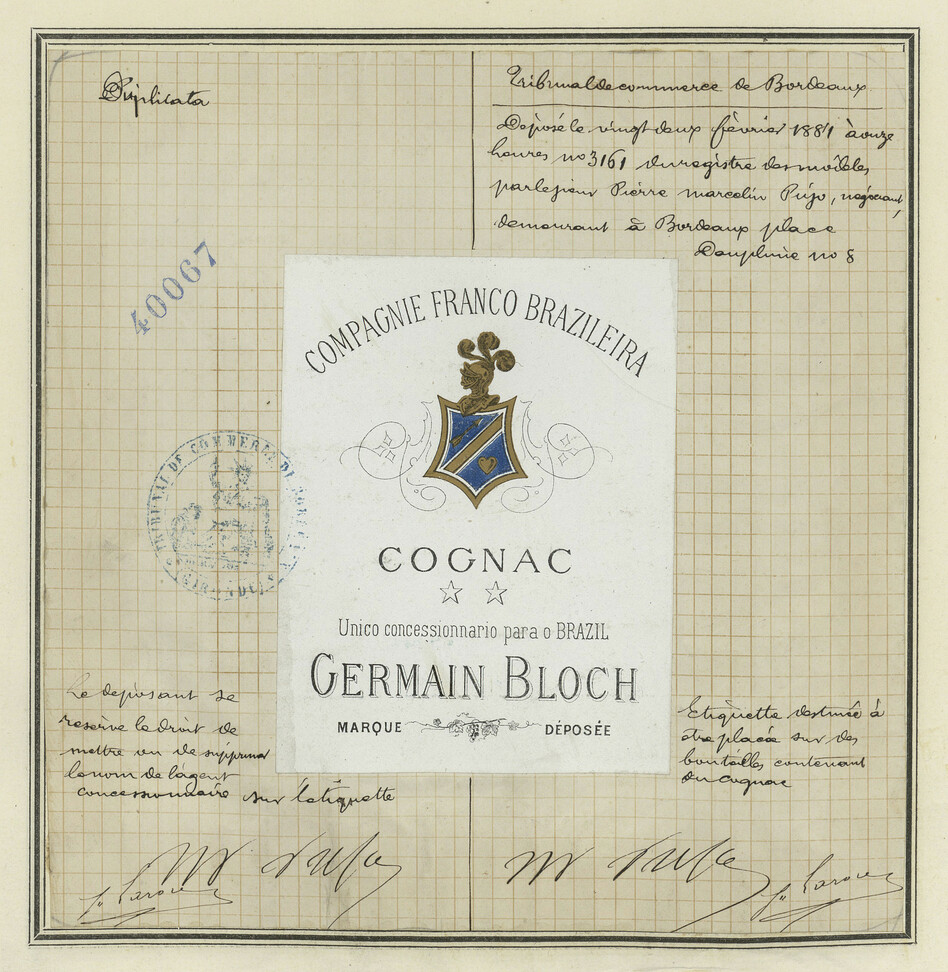 Duplicata
Tribunal de commerce de Bordeaux
Déposé le vingt deux février 1881 à onze
heures no 3161 du registre des modèles
par le sieur Pierre marcelin Pujo, négociant,
demeurant à Bordeaux place
Dauphine no 8
40067
COMPAGNIE FRANCO BRAZILEIRA
TRIBUNAL DE COMMERCE DE BORDEAUX
GIRONDE
COGNAC
Unico concessionnario para o BRAZIL
GERMAIN BLOCH
MARQUE DÉPOSÉE
Le déposant se
reserve le droit de
mettre ou de supprimer
le nom de l'agent
concessionnaire sur l'étiquette
Etiquette destinée à
être placée sur des
bouteilles contenant
du cognac